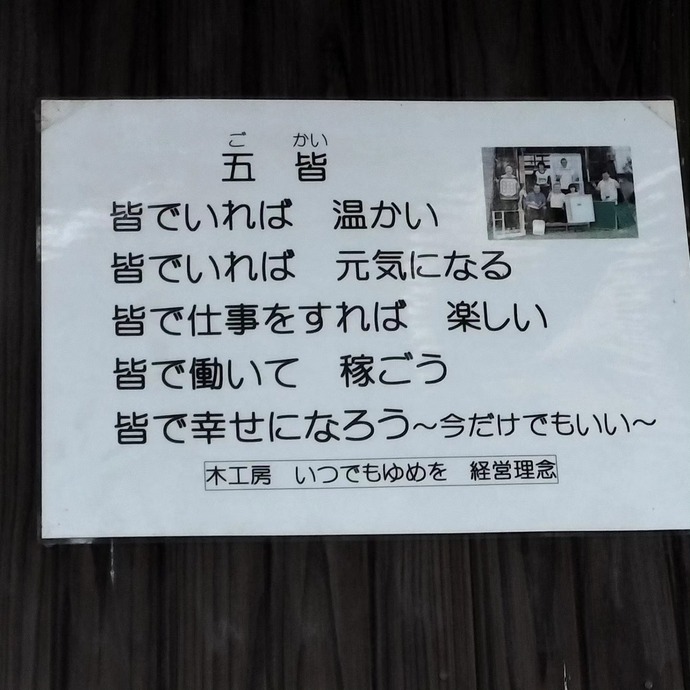 ご かい
五 皆
皆でいれば 温かい
皆でいれば 元気になる
皆で仕事をすれば 楽しい
皆で働いて 稼ごう
皆で幸せになろう～今だけでもいい～
木工房 いつでもゆめを 経営理念